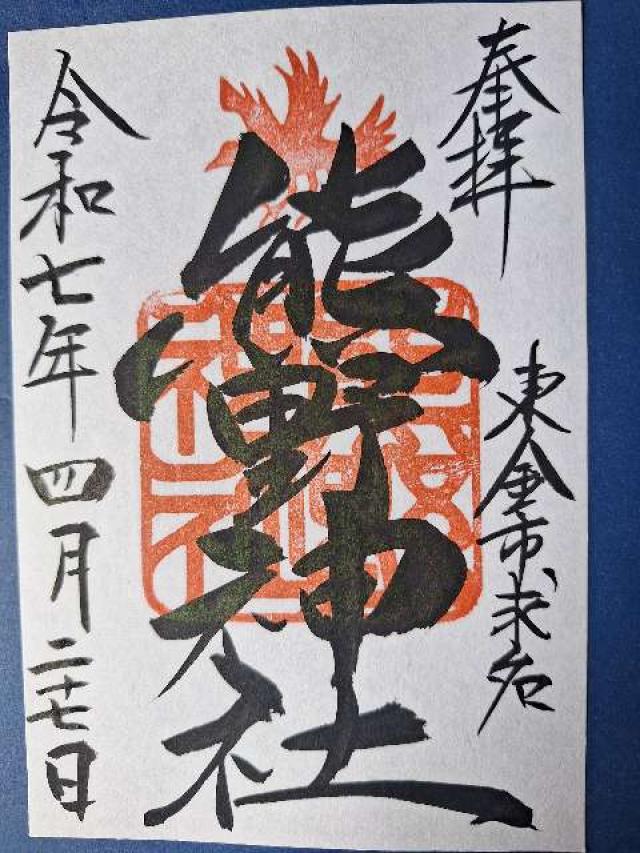 奉拝
東金市求名
熊野神社
令和七年四月二十七日